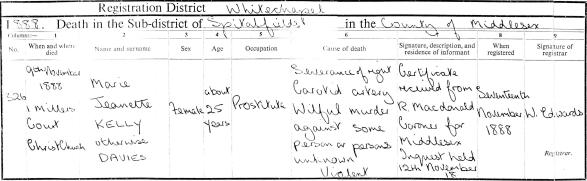 Registration District Whitechapel
1888. Death in the Sub-district of Spitalfields in the County of Middlesex
Columns:— 1 2 3 4 5 6 7 8 9
No. When and where died Name and surname Sex Age Occupation Cause of death Signature, description, and residence of informant When registered Signature of registrar
326
9th November
1888
1 Millers
Court
Christchurch
Marie
Jeanette
KELLY
otherwise
DAVIES
Female
about
25
years
Prostitute
Severance of right
Carotid artery
Wilful murder
against some
person or persons
unknown
Violent
Certificate
received from
R Macdonald
Coroner for
Middlesex
Inquest held
12th November
18
Seventeenth
November
1888
W. Edwards
Registrar.